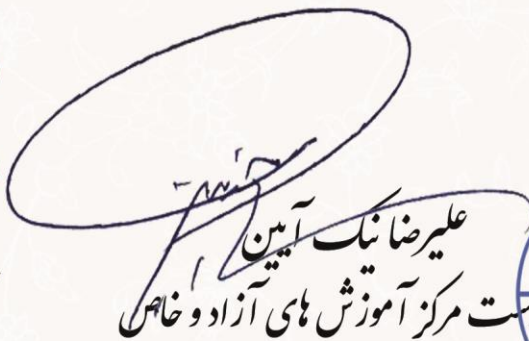 علیرضا نیک آیین
ست مرکز آموزش های آزاد و خاص